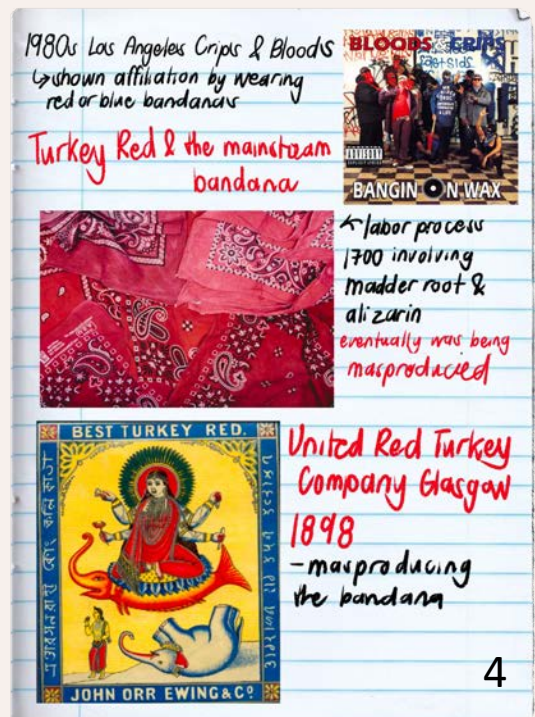 1980s Los Angeles Crips & Bloods
↳shown affiliation by wearing
red or blue bandanas
Turkey Red & the mainstream
bandana
BLOODS & CRIPS
BANGIN ON WAX
PARENTAL
ADVISORY
EXPLICIT LYRICS
↖labor process
1700 involving
madder root &
alizarin
eventually was being
masproducied
BEST TURKEY RED.
JOHN ORR EWING & Co
United Red Turkey
Company Glasgow
1898
-masproducing
the bandana
4